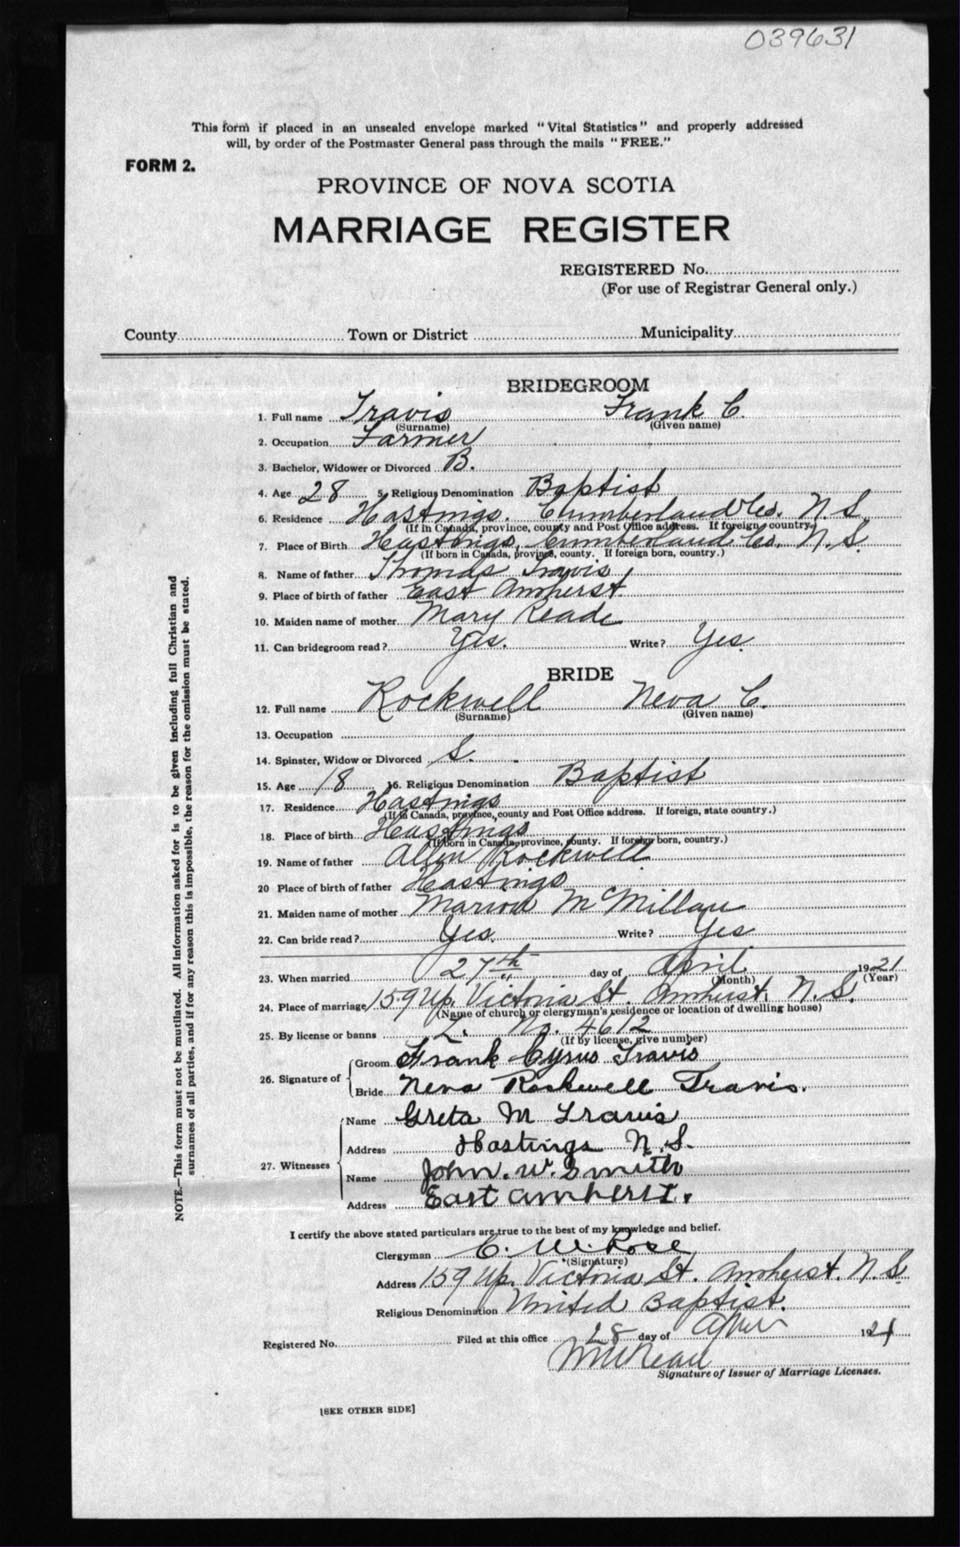 039631
This form if placed in an unsealed envelope marked "Vital Statistics" and properly addressed
will, by order of the Postmaster General pass through the mails "FREE."
FORM 2.
PROVINCE OF NOVA SCOTIA
MARRIAGE REGISTER
REGISTERED No.
(For use of Registrar General only.)
County Town or District Municipality
BRIDEGROOM
1. Full name Travis Frank C.
(Surname) (Given name)
2. Occupation Farmer
3. Bachelor, Widower or Divorced B.
4. Age 28 5. Religious Denomination Baptist
6. Residence Hastings. Cumberland Co. N.S.
(If in Canada, province, county and Post Office address. If foreign, country.)
7. Place of Birth Hastings, Cumberland Co. N.S.
(If born in Canada, province, county. If foreign born, country.)
8. Name of father Thomas Travis
9. Place of birth of father East Amherst
10. Maiden name of mother Mary Reade
11. Can bridegroom read? Yes. Write? Yes
BRIDE
12. Full name Rockwell Neva C.
(Surname) (Given name)
13. Occupation
14. Spinster, Widow or Divorced S.
15. Age 18 16. Religious Denomination Baptist
17. Residence Hastings
(If in Canada, province, county and Post Office address. If foreign, state country.)
18. Place of birth Hastings
(If born in Canada, province, county. If foreign born, country.)
19. Name of father Allen Rockwell
20 Place of birth of father Hastings
21. Maiden name of mother Marion McMillan
22. Can bride read? Yes. Write? Yes
23. When married 27th day of April 1921
(Month) (Year)
24. Place of marriage 159 Up. Victoria St. Amherst, N.S.
(Name of church or clergyman's residence or location of dwelling house)
25. By license or banns L. No. 4612
(If by license, give number)
26. Signature of
Groom Frank Cyrus Travis
Bride Neva Rockwell Travis.
27. Witnesses
Name Greta M Travis
Address Hastings N.S.
Name John. W. Smith
Address East Amherst.
I certify the above stated particulars are true to the best of my knowledge and belief.
Clergyman C. W. Rose
*(Signature)
Address 159 Up. Victoria St. Amherst. N.S.
Religious Denomination United Baptist.
Registered No. Filed at this office 28 day of April 1921
Signature of Issuer of Marriage Licenses.
[SEE OTHER SIDE]
NOTE.—This form must not be mutilated. All information asked for is to be given including full Christian and
surnames of all parties, and if for any reason this is impossible, the reason for the omission must be stated.